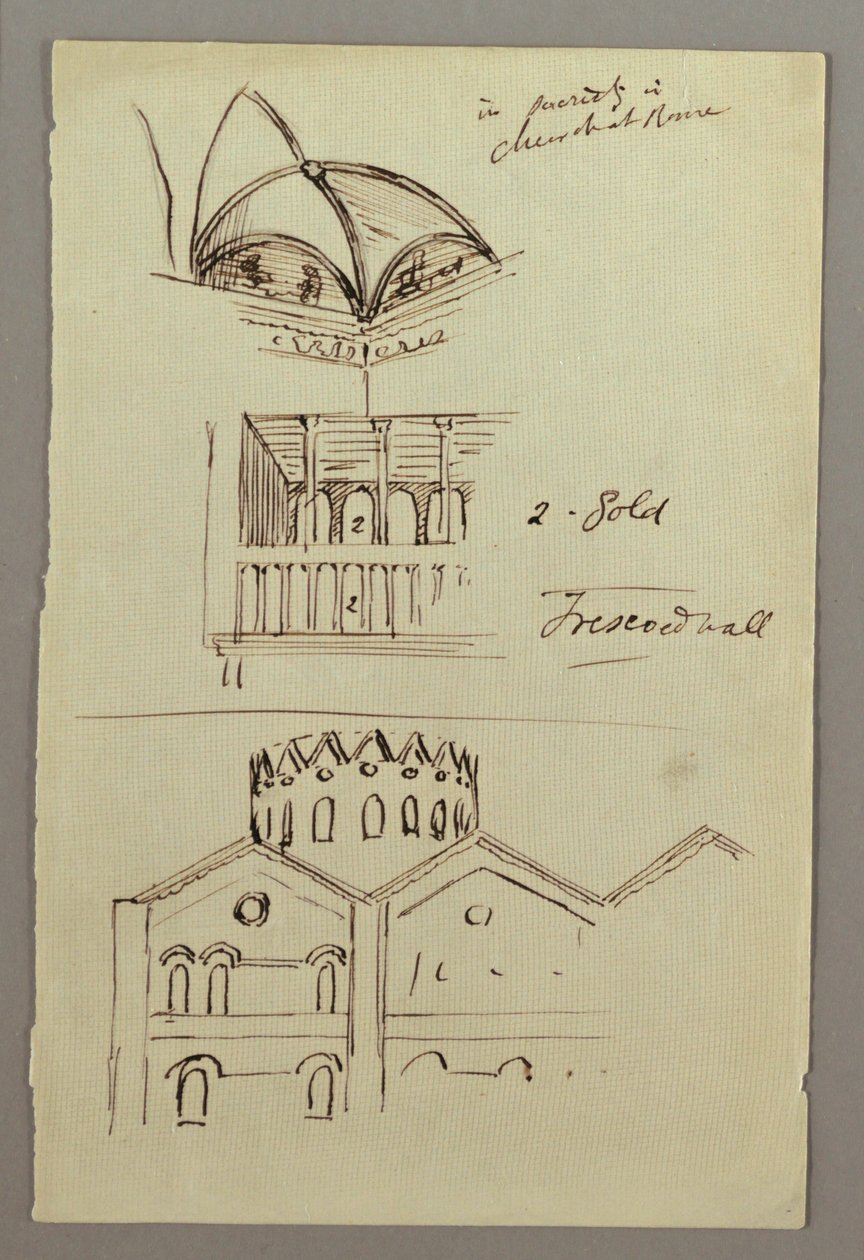 in sacristy in
church at Rome
2 - Gold
2
2
Frescoed wall